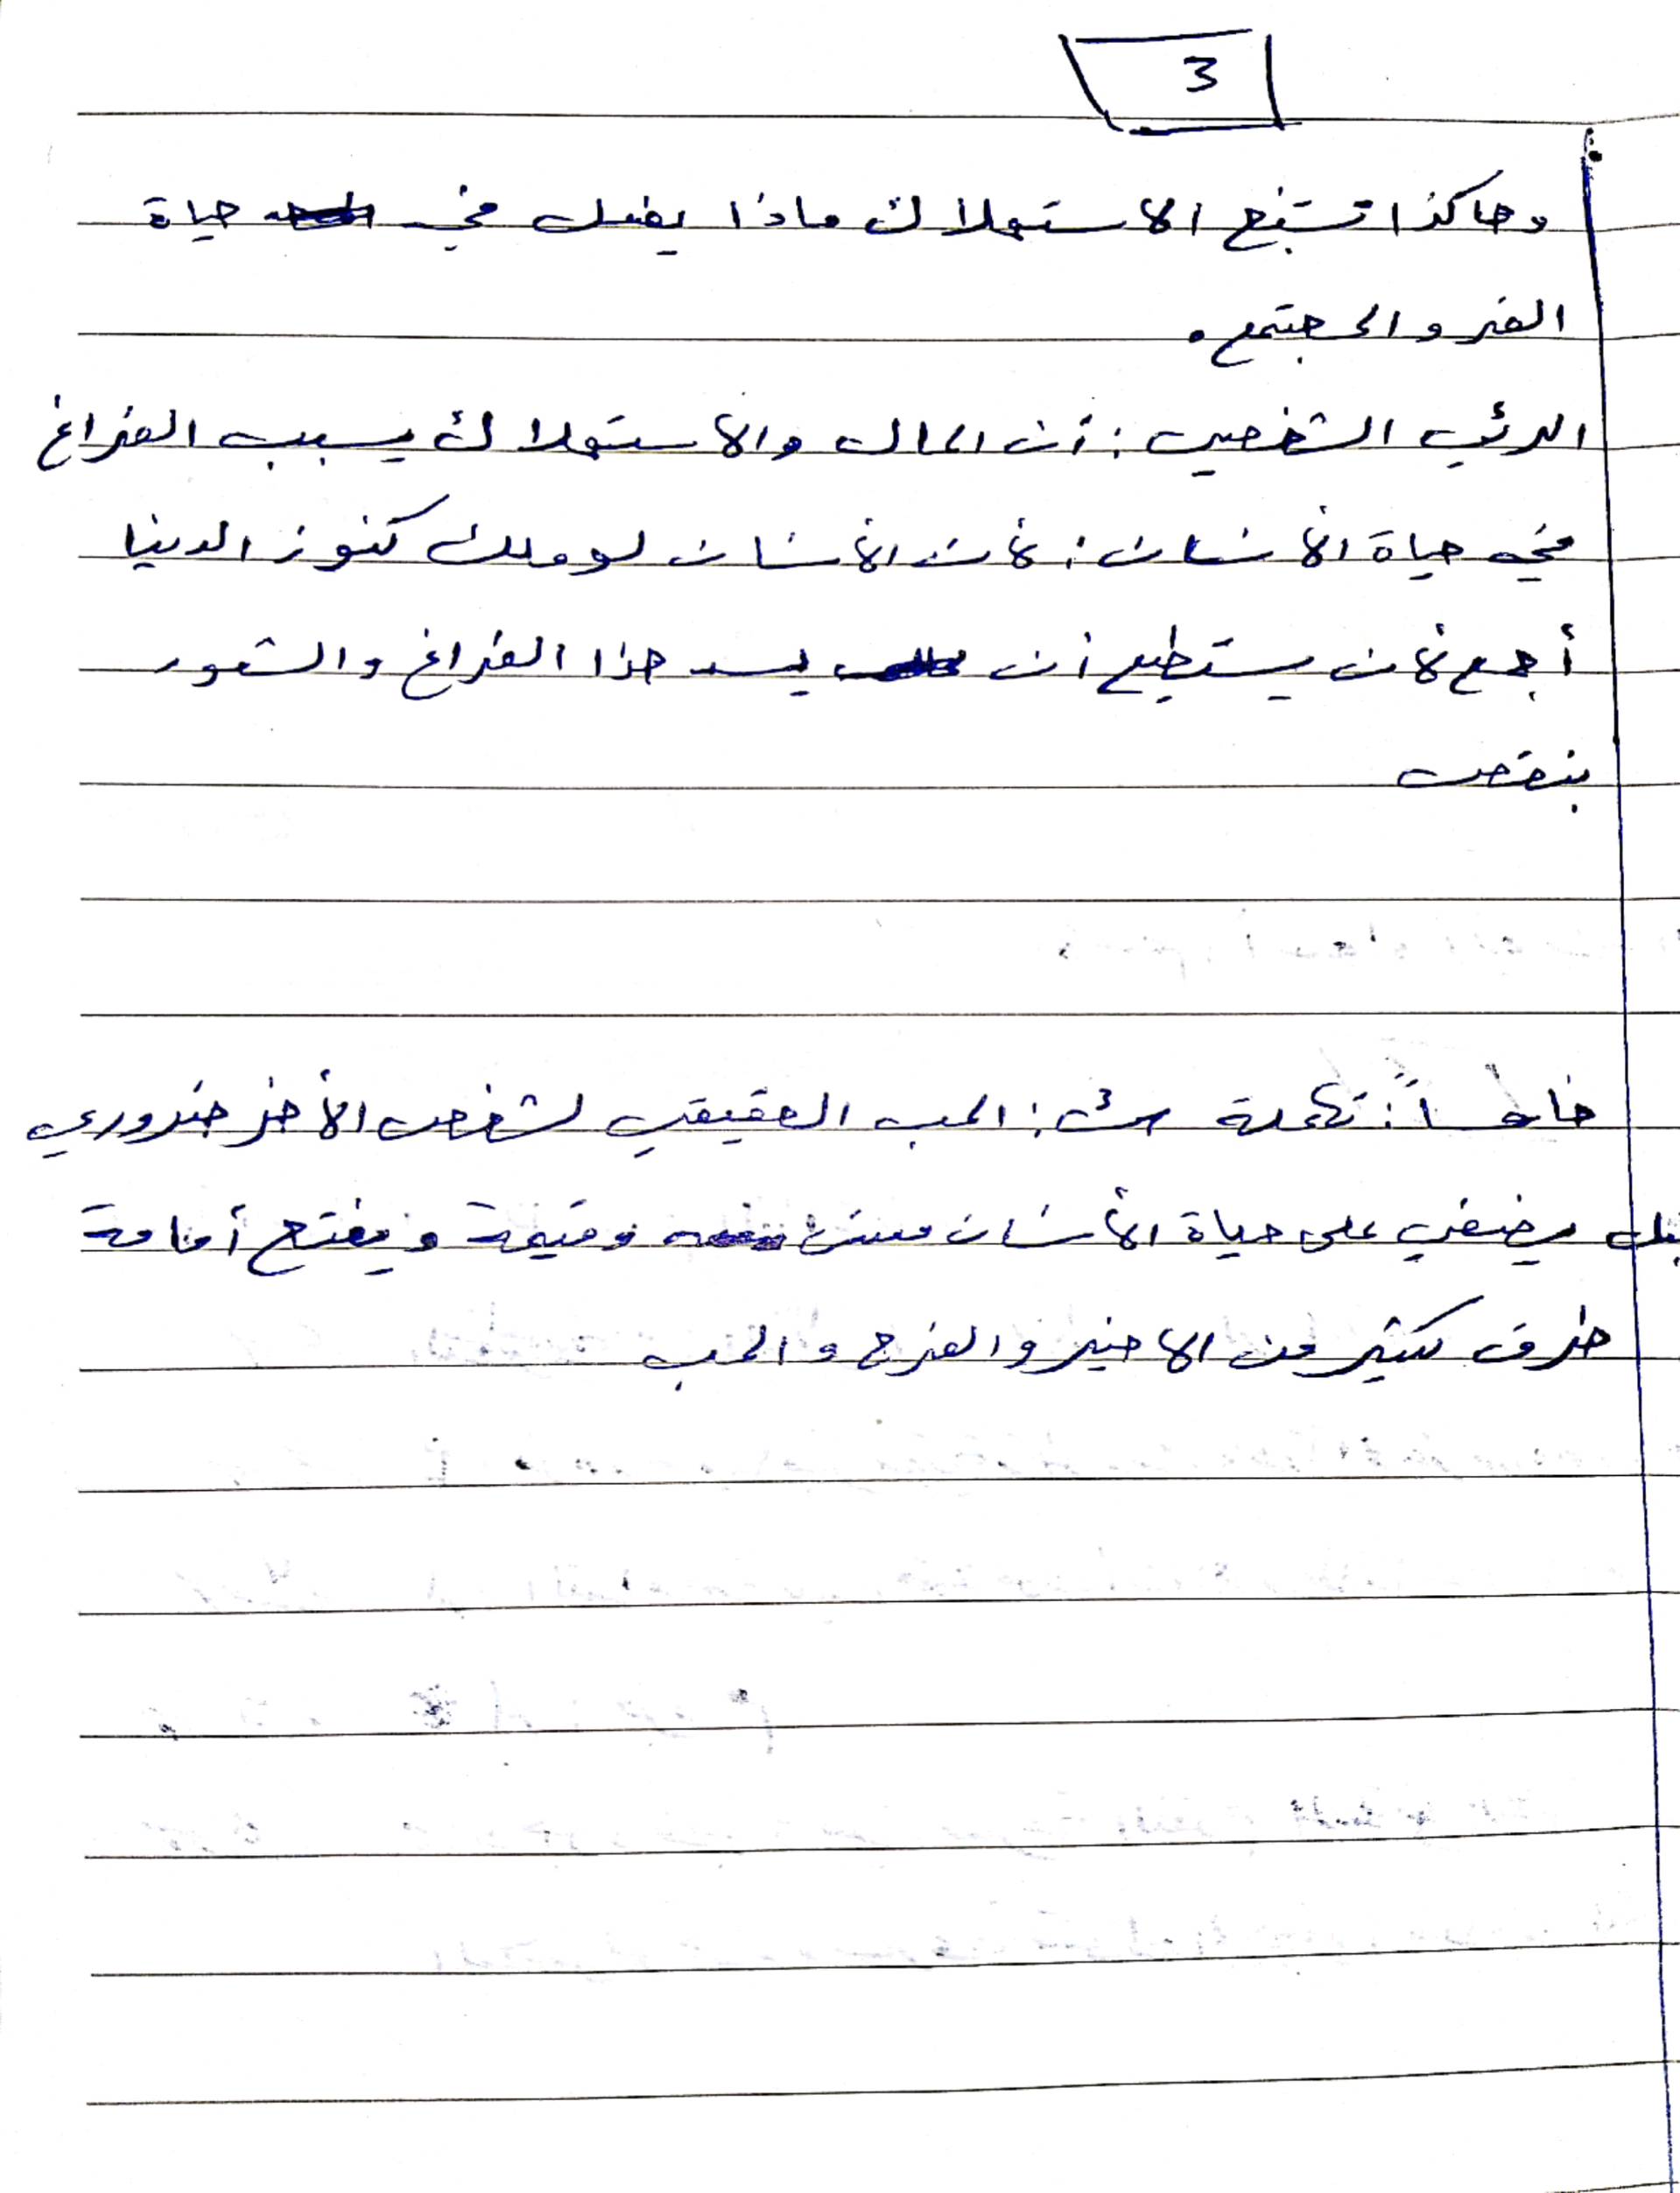 3
وهاكذا تشبع الاستهلاك ماذا يفعل في حياة
الفر والمجتمع.
الرئي الشخصي: أن المال والاستهلاك يسبب الفراغ
في حياة الأنسان: لأن الأنسان لو ملك كنوز الدينا
أجمع لأن يستطيع أن يسد هذا الفراغ والشعور
بنقص
خامساً: تكملة س: الحب الحقيقي لشخص الأخر ضروري
يضفي على حياة الأنسان معنى وقيمة ويفتح أمامة
طرق كثير من الاخير والفرح والحب